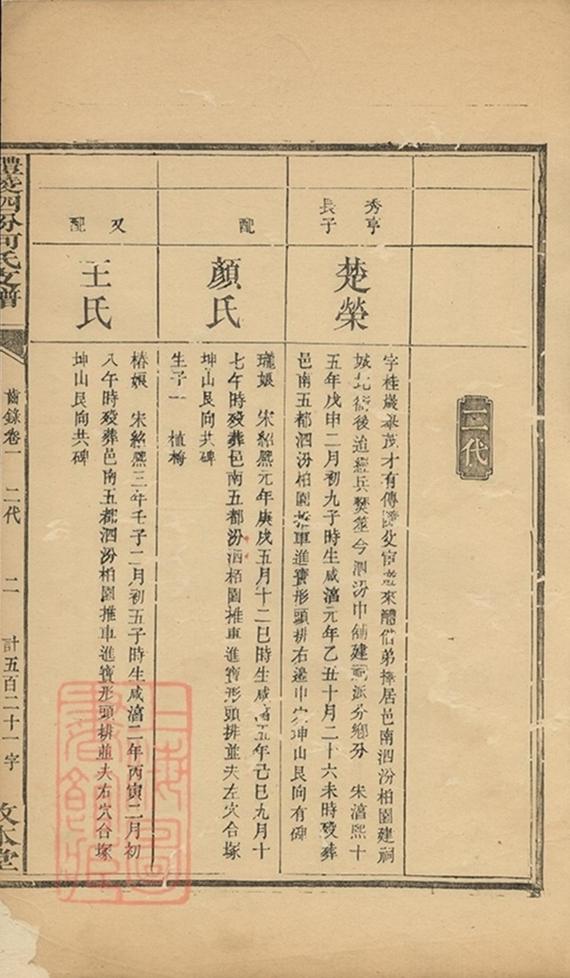 二代
秀亨
長子
楚榮
字桂嵗舉茂才有傳隨父官遊來醴偕弟擇居邑南泗汾柏園建祠
城北衙後迨經兵燹並今泗汾巾舖建祠派分鄉汾 宋湻熙十
五年戊申二月初九子時生咸湻元年乙丑十月二十六未時歿葬
邑南五都泗汾柏園推車進寶形頭排右邊中穴坤山艮向有碑
配
顏氏
瓏娘 宋紹熙元年庚戌五月十二巳時生咸湻五年己巳九月十
七午時歿葬邑南五都汾泗栢園推車進寶形頭排並夫左穴合塚
坤山艮向共碑
生子一 植梅
又
配
王氏
椿娘 宋紹熙三年壬子二月初五子時生咸湻二年丙寅二月初
八午時歿葬邑南五都泗汾柏園推車進寶形頭排並夫右穴合塚
坤山艮向共碑
醴陵四汾何氏支譜
齒錄卷一 二代 二 計五百二十一字
敦本堂